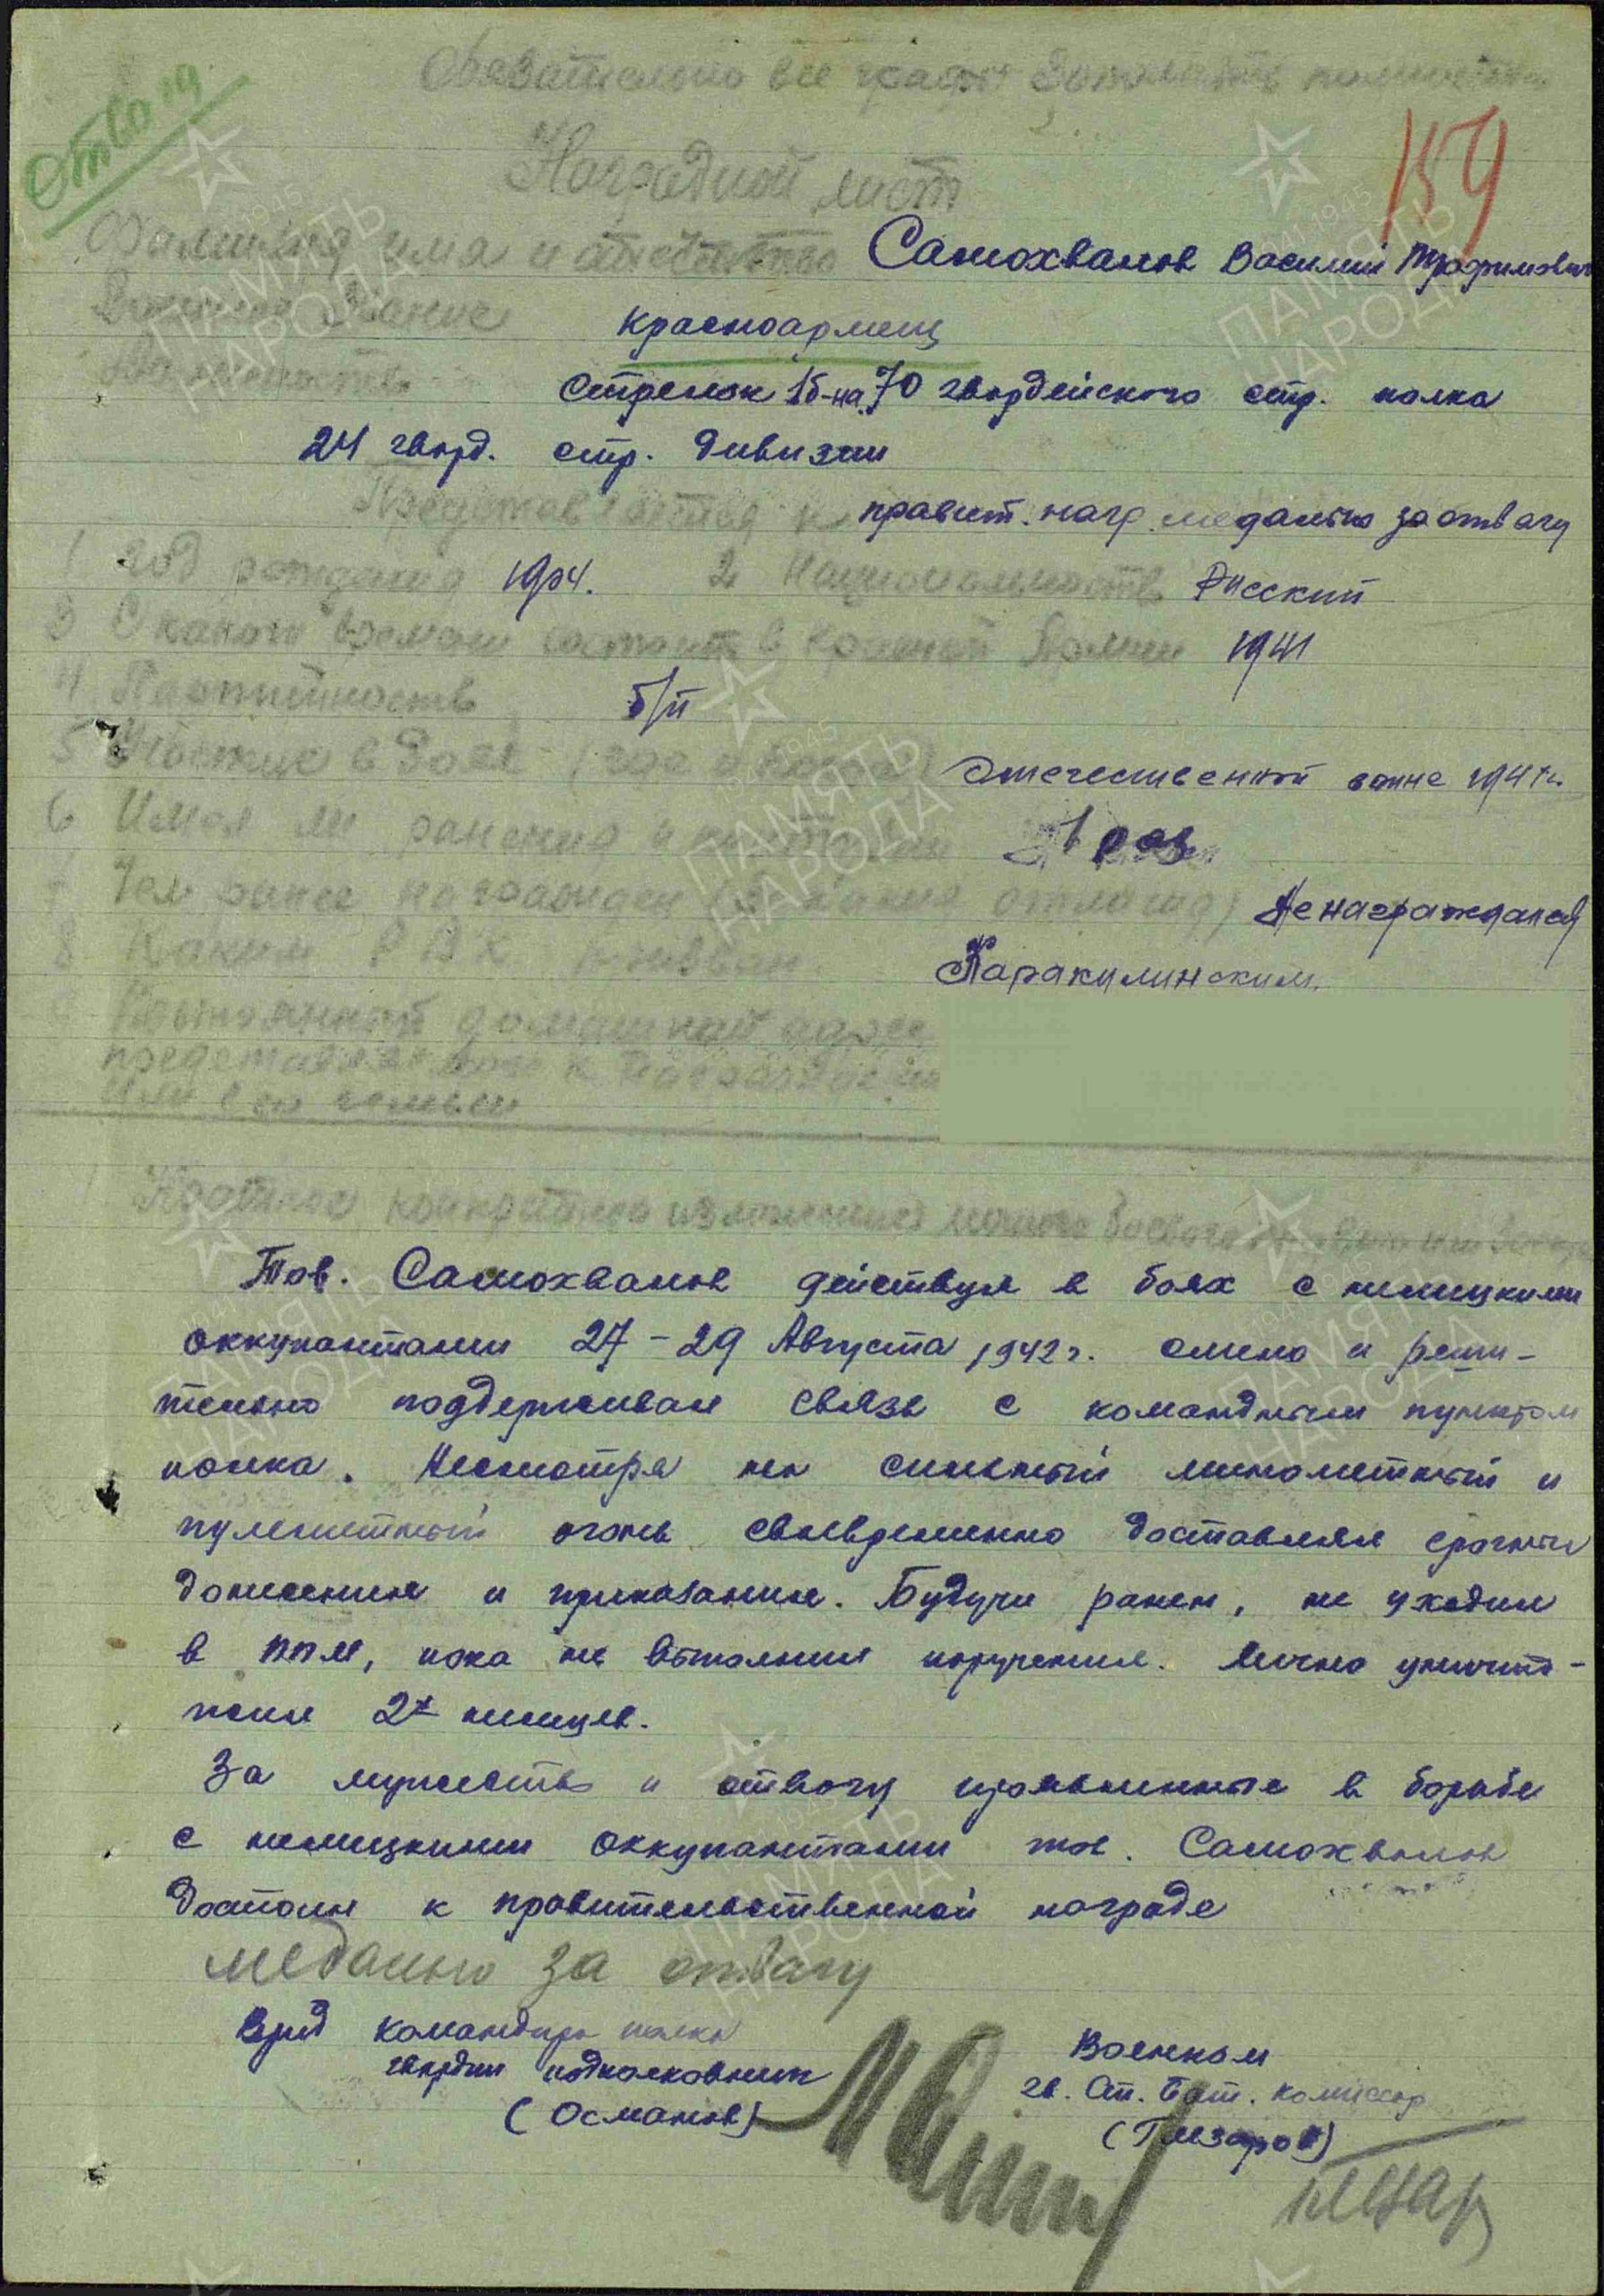 Отвага
Обязательно все графы заполнять полностью
159
Наградной лист
Фамилия имя и отчество Самохвалов Василий Трофимович
Военное звание красноармеец
Стрелок 1 б-на 70 гвардейского стр. полка
24 гвард. стр. дивизии
Представляется к правит. нагр. медалью за отвагу
1 Год рождения 1904. 2 Национальность Русский
3 С какого времени состоит в Красной Армии 1941
4 Партийность б/п
5 Участие в боях (где и когда) Отечественной войне 1941 г.
6 Имел ли ранения и контузии 1 раз
7 Чем ранее награжден (за какие отличия) Не награждался
8 Каким РВК призван Каракулинским
Постоянный домашний адрес
представляемого к награждению
или его семьи
1 Краткое конкретное изложение личного боевого
Тов. Самохвалов действуя в боях с немецкими
оккупантами 27-29 Августа 1942 г. смело и реши-
тельно поддерживал связь с командным пунктом
полка. Несмотря на сильный минометный и
пулеметный огонь своевременно доставлял срочные
донесения и приказания. Будучи ранен, не уходил
в ППМ, пока не выполнил поручения. Лично уничто-
жил 2х немцев.
За мужество и отвагу проявленные в борьбе
с немецкими оккупантами тов. Самохвалов
достоин к правительственной награде
медалью за отвагу
Врид командира полка
гвардии подполковник
(Османов)
Военком
гв. Ст. бат. комиссар
(Гизаров)